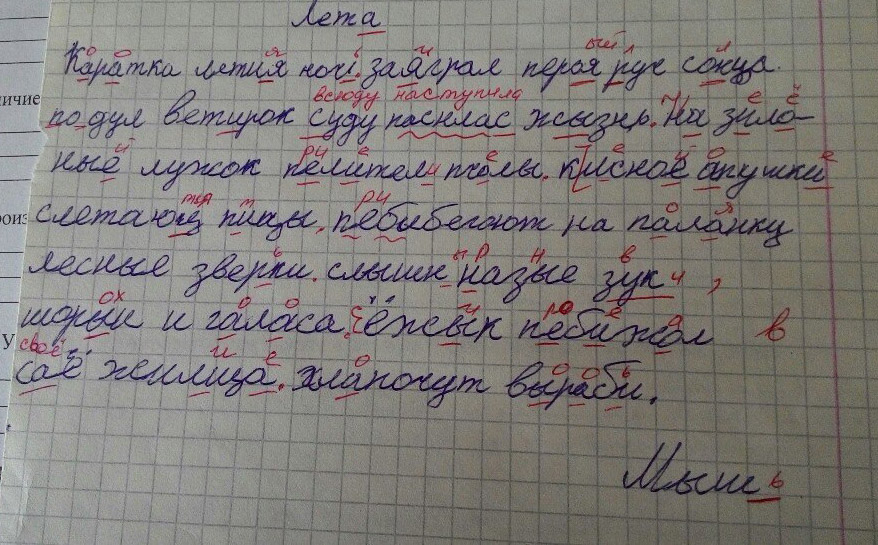 Лета
Каратка летия ночі. заяграл перая руч сонца.
подул ветирок суду паснлас жызнь. На зило-
ные лужок пелители пчолы. к лисное апушки
слетаюц пицы. пебибегают на паланку
лесные зверки. слышн назые зуки,
шорыи и галаса. ёжык пебижал в
саё жилища. хлапочут выраби.
Мышь